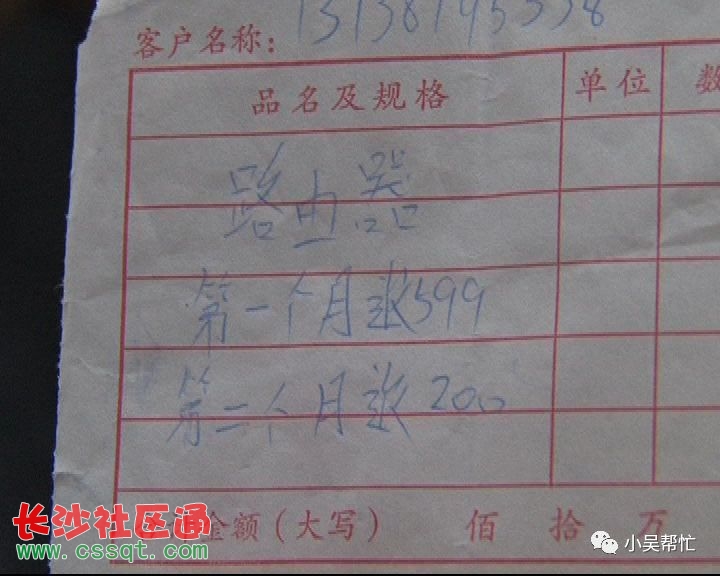 客户名称：13138195338
品名及规格 单位 数
路由器
第一个月涨599
第二个月涨200
金额（大写） 佰 拾 万
长沙社区通
www.cssqt.com
小吴帮忙